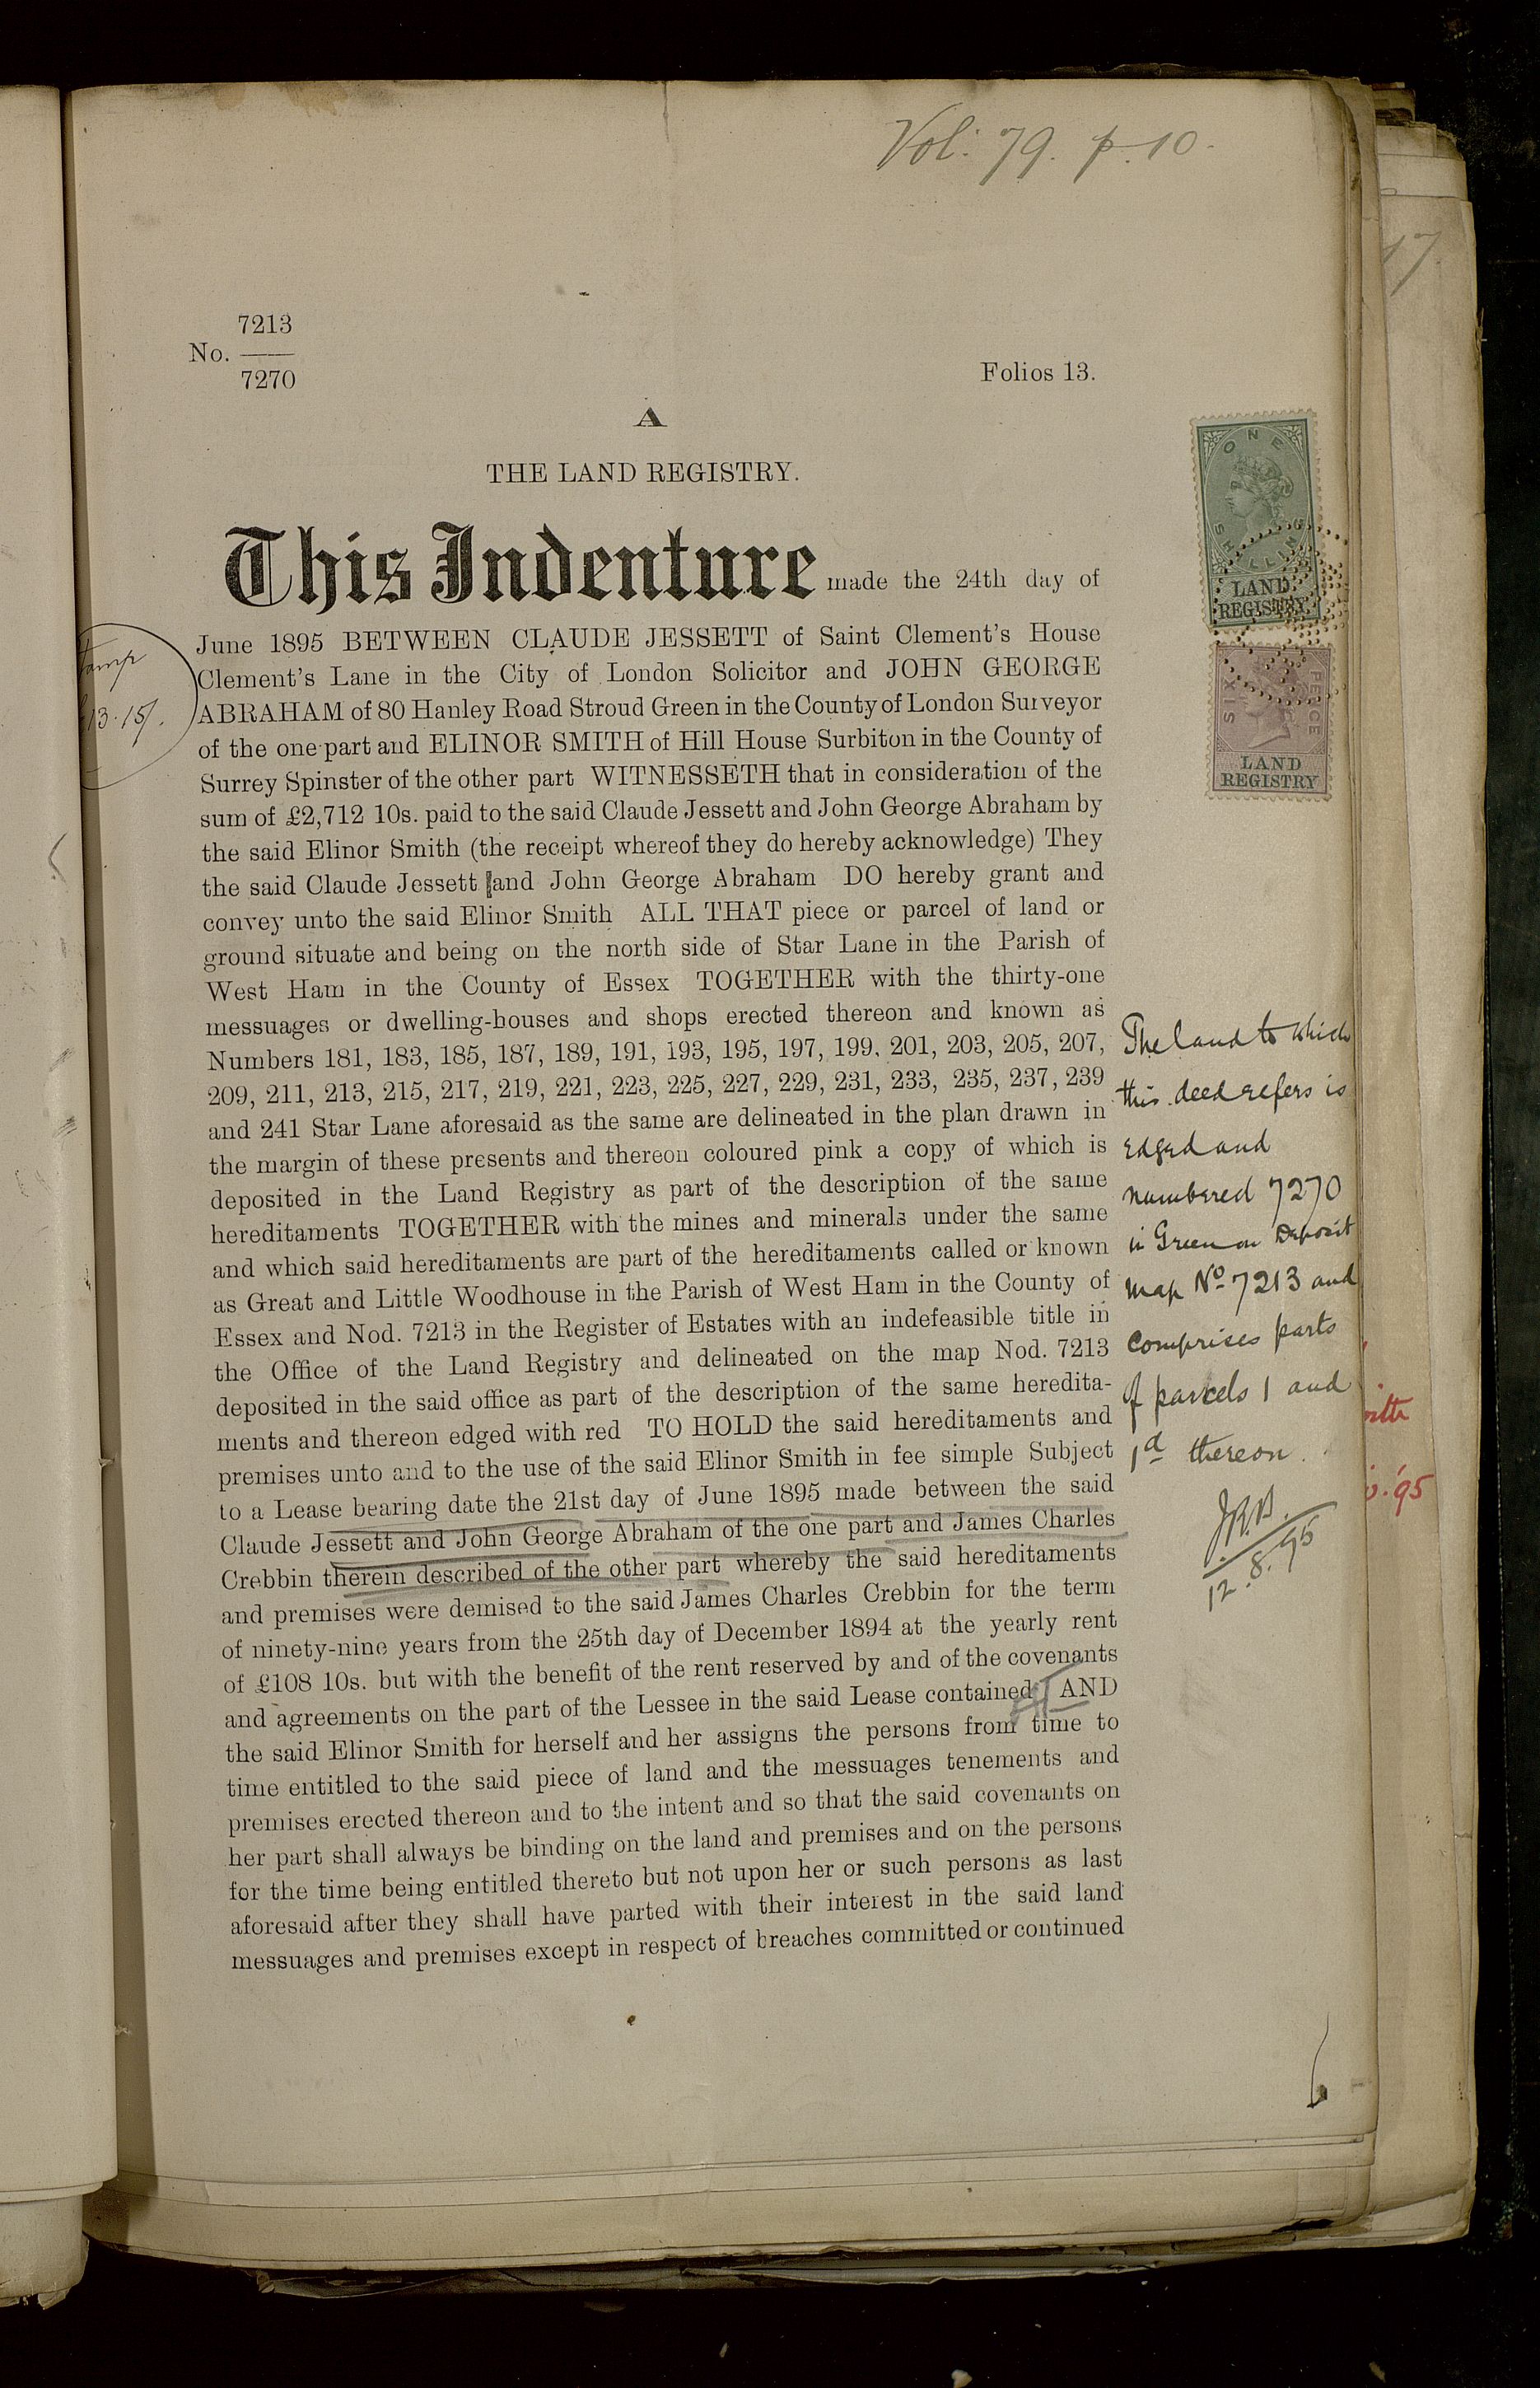 Vol: 79. p. 10.
7213
No.
7270
Folios 13.
A
THE LAND REGISTRY.
This Indenture made the 24th day of
June 1895 BETWEEN CLAUDE JESSETT of Saint Clement's House
Clement's Lane in the City of London Solicitor and JOHN GEORGE
ABRAHAM of 80 Hanley Road Stroud Green in the County of London Surveyor
of the one part and ELINOR SMITH of Hill House Surbiton in the County of
Surrey Spinster of the other part WITNESSETH that in consideration of the
sum of £2,712 10s. paid to the said Claude Jessett and John George Abraham by
the said Elinor Smith (the receipt whereof they do hereby acknowledge) They
the said Claude Jessett and John George Abraham DO hereby grant and
convey unto the said Elinor Smith ALL THAT piece or parcel of land or
ground situate and being on the north side of Star Lane in the Parish of
West Ham in the County of Essex TOGETHER with the thirty-one
messuages or dwelling-houses and shops erected thereon and known as
Numbers 181, 183, 185, 187, 189, 191, 193, 195, 197, 199, 201, 203, 205, 207,
209, 211, 213, 215, 217, 219, 221, 223, 225, 227, 229, 231, 233, 235, 237, 239
and 241 Star Lane aforesaid as the same are delineated in the plan drawn in
the margin of these presents and thereon coloured pink a copy of which is
deposited in the Land Registry as part of the description of the same
hereditaments TOGETHER with the mines and minerals under the same
and which said hereditaments are part of the hereditaments called or known
as Great and Little Woodhouse in the Parish of West Ham in the County of
Essex and Nod. 7213 in the Register of Estates with an indefeasible title in
the Office of the Land Registry and delineated on the map Nod. 7213
deposited in the said office as part of the description of the same heredita-
ments and thereon edged with red TO HOLD the said hereditaments and
premises unto and to the use of the said Elinor Smith in fee simple Subject
to a Lease bearing date the 21st day of June 1895 made between the said
Claude Jessett and John George Abraham of the one part and James Charles
Crebbin therein described of the other part whereby the said hereditaments
and premises were demised to the said James Charles Crebbin for the term
of ninety-nine years from the 25th day of December 1894 at the yearly rent
of £108 10s. but with the benefit of the rent reserved by and of the covenants
and agreements on the part of the Lessee in the said Lease contained AND
the said Elinor Smith for herself and her assigns the persons from time to
time entitled to the said piece of land and the messuages tenements and
premises erected thereon and to the intent and so that the said covenants on
her part shall always be binding on the land and premises and on the persons
for the time being entitled thereto but not upon her or such persons as last
aforesaid after they shall have parted with their interest in the said land
messuages and premises except in respect of breaches committed or continued
ONE
SHILLING
LAND
REGISTRY
SIX
PENCE
LAND
REGISTRY
The land to which
this deed refers is
edged and
numbered 7270
in Green on Deposit
map No 7213 and
comprises parts
of parcels 1 and
1d thereon.
J.R.B.
12.8.95
13.15/.
17